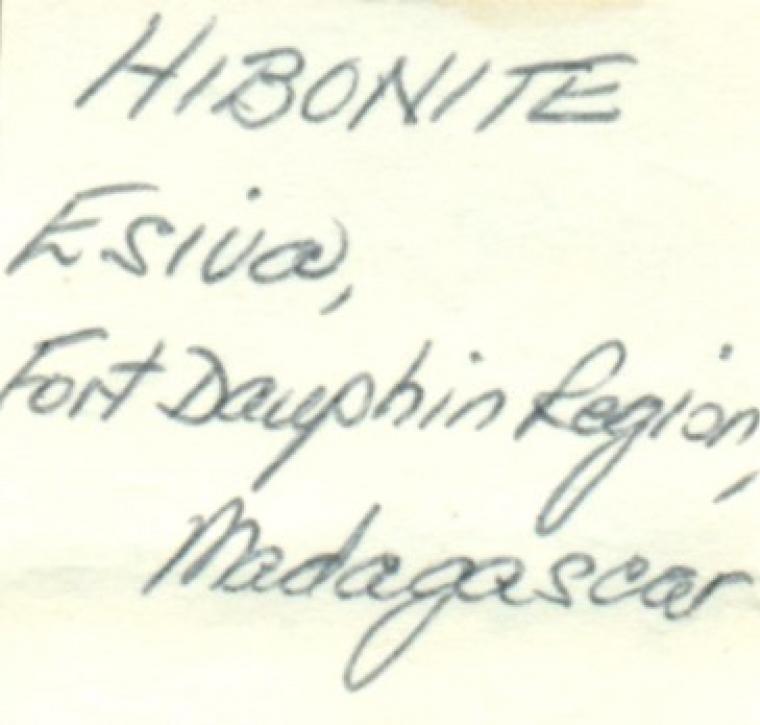 HIBONITE
Esiva,
Fort Dauphin Region,
Madagascar